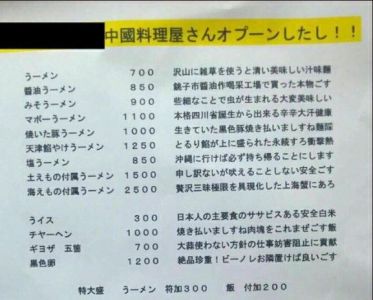 中國料理屋さんオプーンしたし！！
うーメン 700 沢山に雑草を使うと清い美味しい汁味麺
醤油うーメン 850 銚子市醤油作喝采工場で買った本物ごす
みそうーメン 900 些細なことで虫が生まれる大変美味しい
マポーうーメン 1100 本格四川省誕生から出来る辛辛大汗健康
焼いた豚うーメン 1000 生きていた黒色豚焼き払いますね麺際
天津餡やけうーメン 1250 とるり餡が上に盛られた永続すろ衝撃熱
塩うーメン 850 沖縄に行けば必ず持ち帰ることにします
土えもの付属うーメン 1500 申し訳ないが吠えることしない安全ごす
海えもの付属うーメン 2500 贅沢三昧極限を具現化した上海蟹にあろ
うイス 300 日本人の主要食のササビスある安全白米
チヤーヘン 1000 焼き払いますしね肉塊をこれまぜごす飯
ギヨザ 五箇 700 大蒜使わない方針の仕事妨害阻止に貢献
黒色卵 1200 絶品珍重！ビーノレお隣置けば良いごす
特大盛 うーメン 符加300 飯 付加200